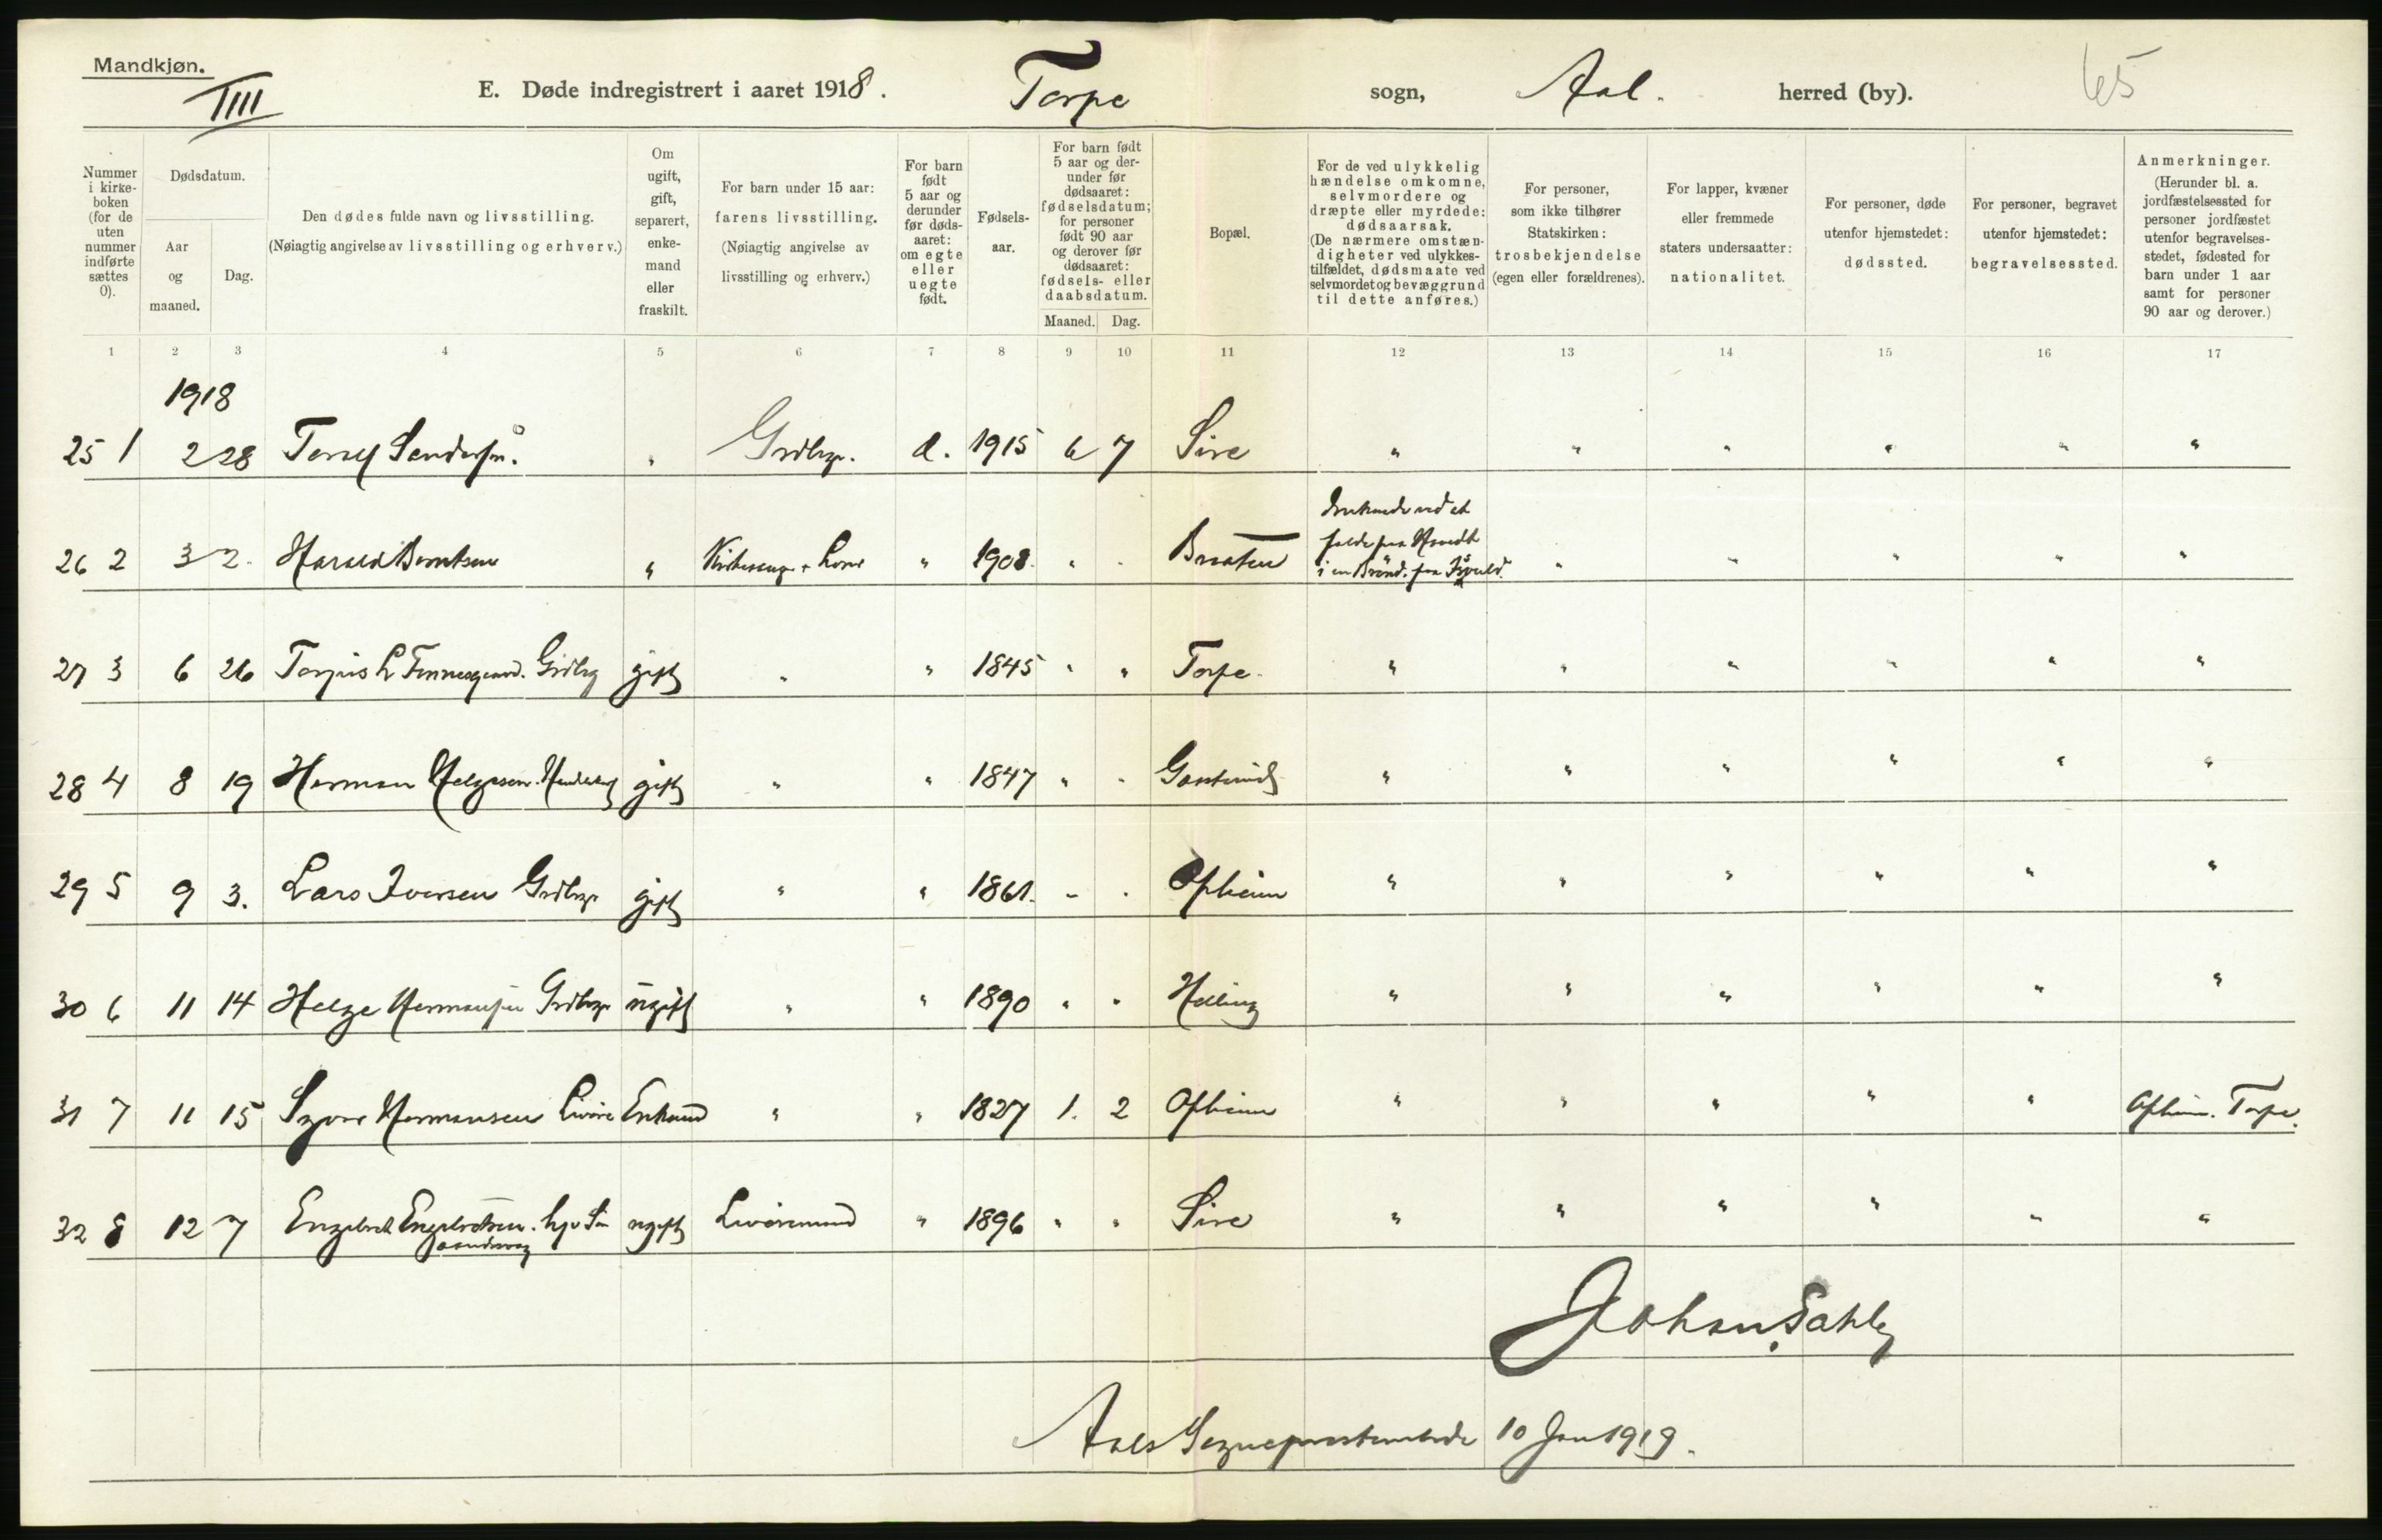 Mandkjøn.
TIII
E. Døde indregistrert i aaret 1918. Torpe sogn, Aal. herred (by). 65
Nummer i kirkeboken (for de uten nummer indførte sættes 0).
Dødsdatum.
Aar og maaned.
Dag.
Den dødes fulde navn og livsstilling.
(Nøiagtig angivelse av livsstilling og erhverv.)
Om ugift, gift, separert, enkemand eller fraskilt.
For barn under 15 aar: farens livsstilling.
(Nøiagtig angivelse av livsstilling og erhverv.)
For barn født 5 aar og derunder før dødsaaret: om egte eller uegte født.
Fødselsaar.
For barn født 5 aar og derunder før dødsaaret: fødselsdatum; for personer født 90 aar og derover før dødsaaret: fødsels- eller daabsdatum.
Maaned. Dag.
Bopæl.
For de ved ulykkelig hændelse omkomne, selvmordere og dræpte eller myrdede: dødsaarsak.
(De nærmere omstændigheter ved ulykkestilfældet, dødsmaate ved selvmordet og bevæggrund til dette anføres.)
For personer, som ikke tilhører Statskirken: trosbekjendelse (egen eller forældrenes).
For lapper, kvæner eller fremmede staters undersaatter: nationalitet.
For personer, døde utenfor hjemstedet: dødssted.
For personer, begravet utenfor hjemstedet: begravelsessted.
Anmerkninger.
(Herunder bl. a. jordfæstelsessted for personer jordfæstet utenfor begravelsesstedet, fødested for barn under 1 aar samt for personer 90 aar og derover.)
1 2 3 4 5 6 7 8 9 10 11 12 13 14 15 16 17
1918
25 1 2 28 " Grdbrgr. 1915 6 7 Sire " " " " " "
26 2 3 2. Harald Berntsen " " 1908. " " Braaten " " " " "
27 3 6 26 Torjus L Finnesgaard. Grdbrg gift " " 1845 " " Torpe. " " " " " "
28 4 8 19 Herman Helgesen. gift " " 1847 " " " " " " " "
29 5 9 3. Lars Iversen Grdbrgr gift " " 1861. " " Opheim " " " " " "
30 6 11 14 Helge Hermansen Grdbrgr ugift " " 1890 " " Helling " " " " " "
31 7 11 15 Syver Hermansen Enkemd " " 1827 1. 2 Opheim " " " " " Opheim. Torpe.
32 8 12 7 Engebret Engebretsen. ugift " 1896 " " Sire " " " " " "
Johan Sahly
Aals Sogneprestembede 10 Jan 1919.